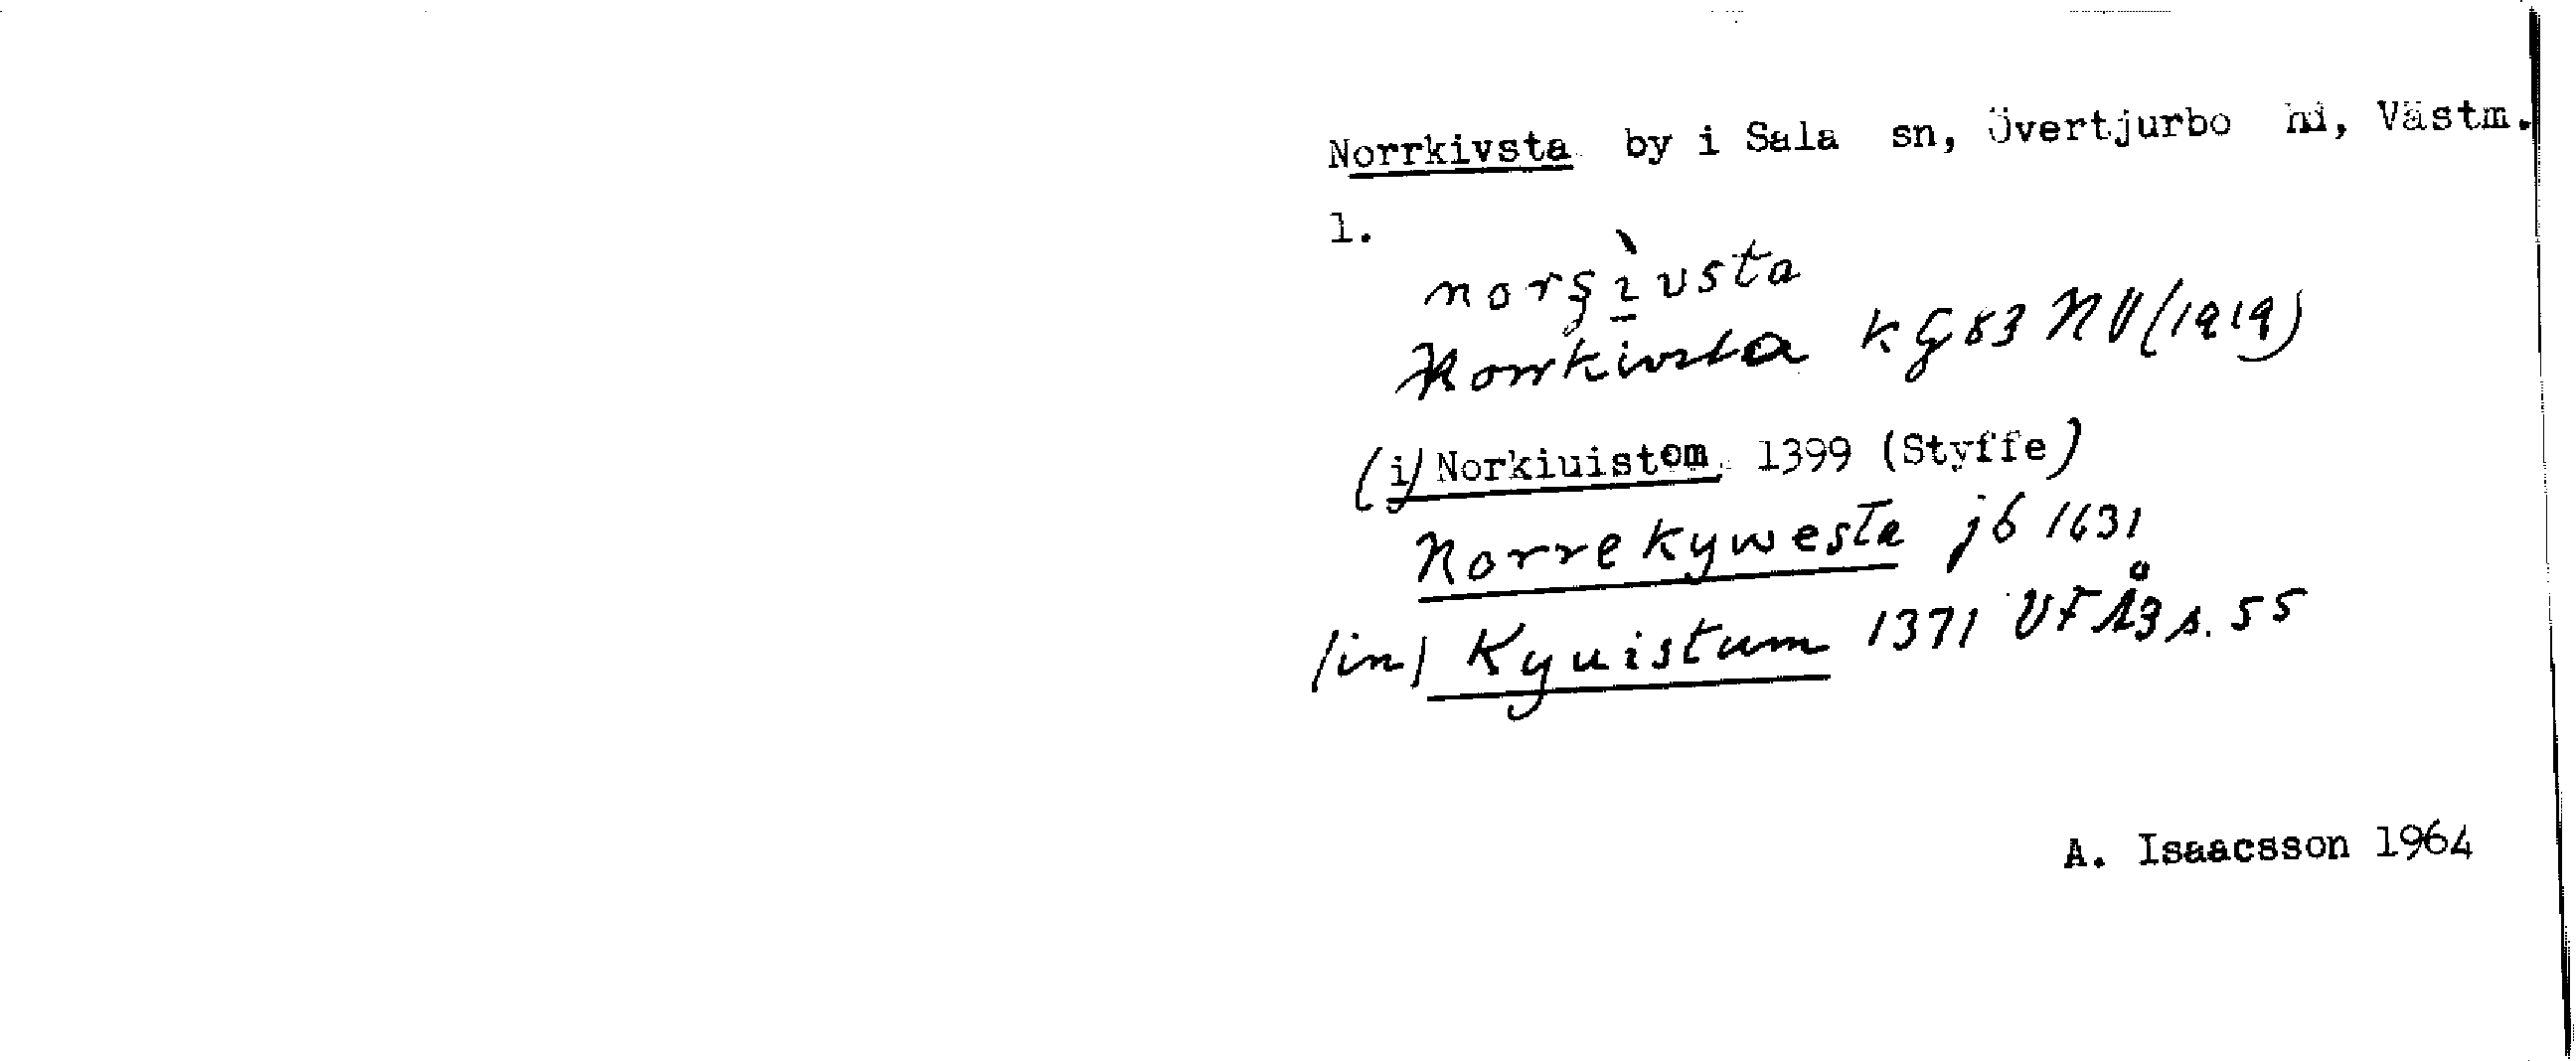 Norrkivsta by i Sala sn, Övertjurbo hd, Västm.
1.
norşìvsta
Norrkivsta kg 83 NV (1919)
(i) Norkiuistom 1399 (Styffe)
Norrekywesta jb 1631
/in/ Kyuistum 1371 VFÅ3 s. 55
A. Isaacsson 1964